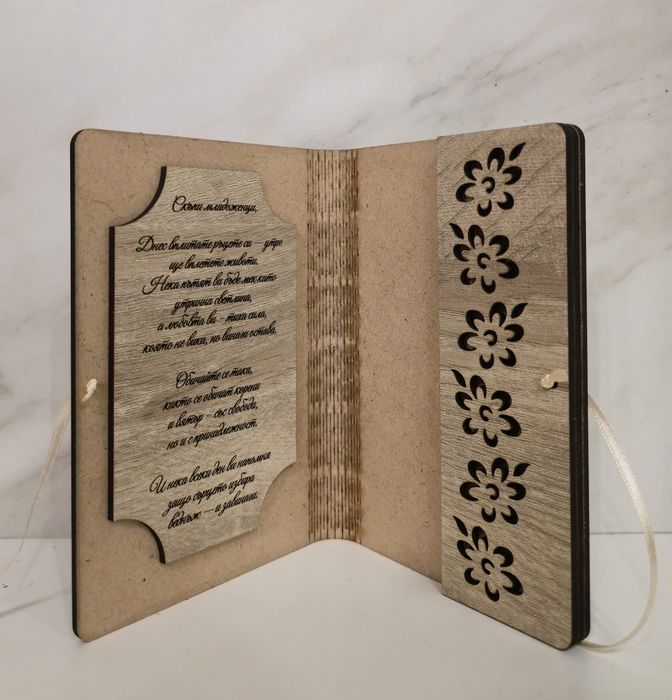 Скъпи младоженци,
Днес вплитате ръцете си — утре
ще вплетете животи.
Нека пътят ви бъде мек като
утринна светлина,
а любовта ви – тиха сила,
която не вика, но винаги остава.
Обичайте се така,
както се обичат корени
и вятър – със свобода,
но и с принадлежност.
И нека всеки ден ви напомня
защо сърцето избира
веднъж — и завинаги.